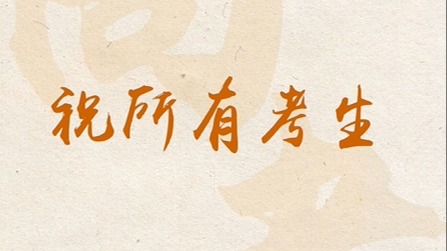 祝所有考生